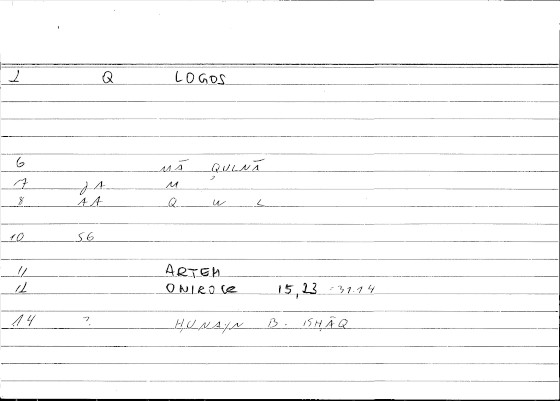 1 Q LOGOS
6 MĀ QULNĀ
7 JA M ?
8 AA Q W L
10 SG
11 ARTEM
12 ONIROCR 15,23 = 31.14
14 ? ḤUNAYN B. ISḤĀQ